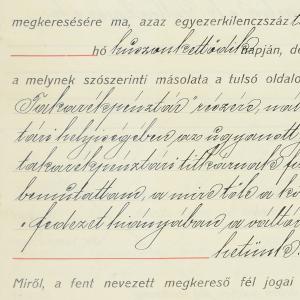 megkeresésére ma, azaz egyezerkilenczszáz
hó huszonkettődik napján, de
a melynek szószerinti másolata a tulsó oldalo
Takarékpénztár" részére, na
tári helyiségében az ugyanott
takarékpénztári titkárnak fe
bemutattam, a mire tőle a kö
"fedezet hiányában a váltó
hetünk.
Miről, a fent nevezett megkereső fél jogai